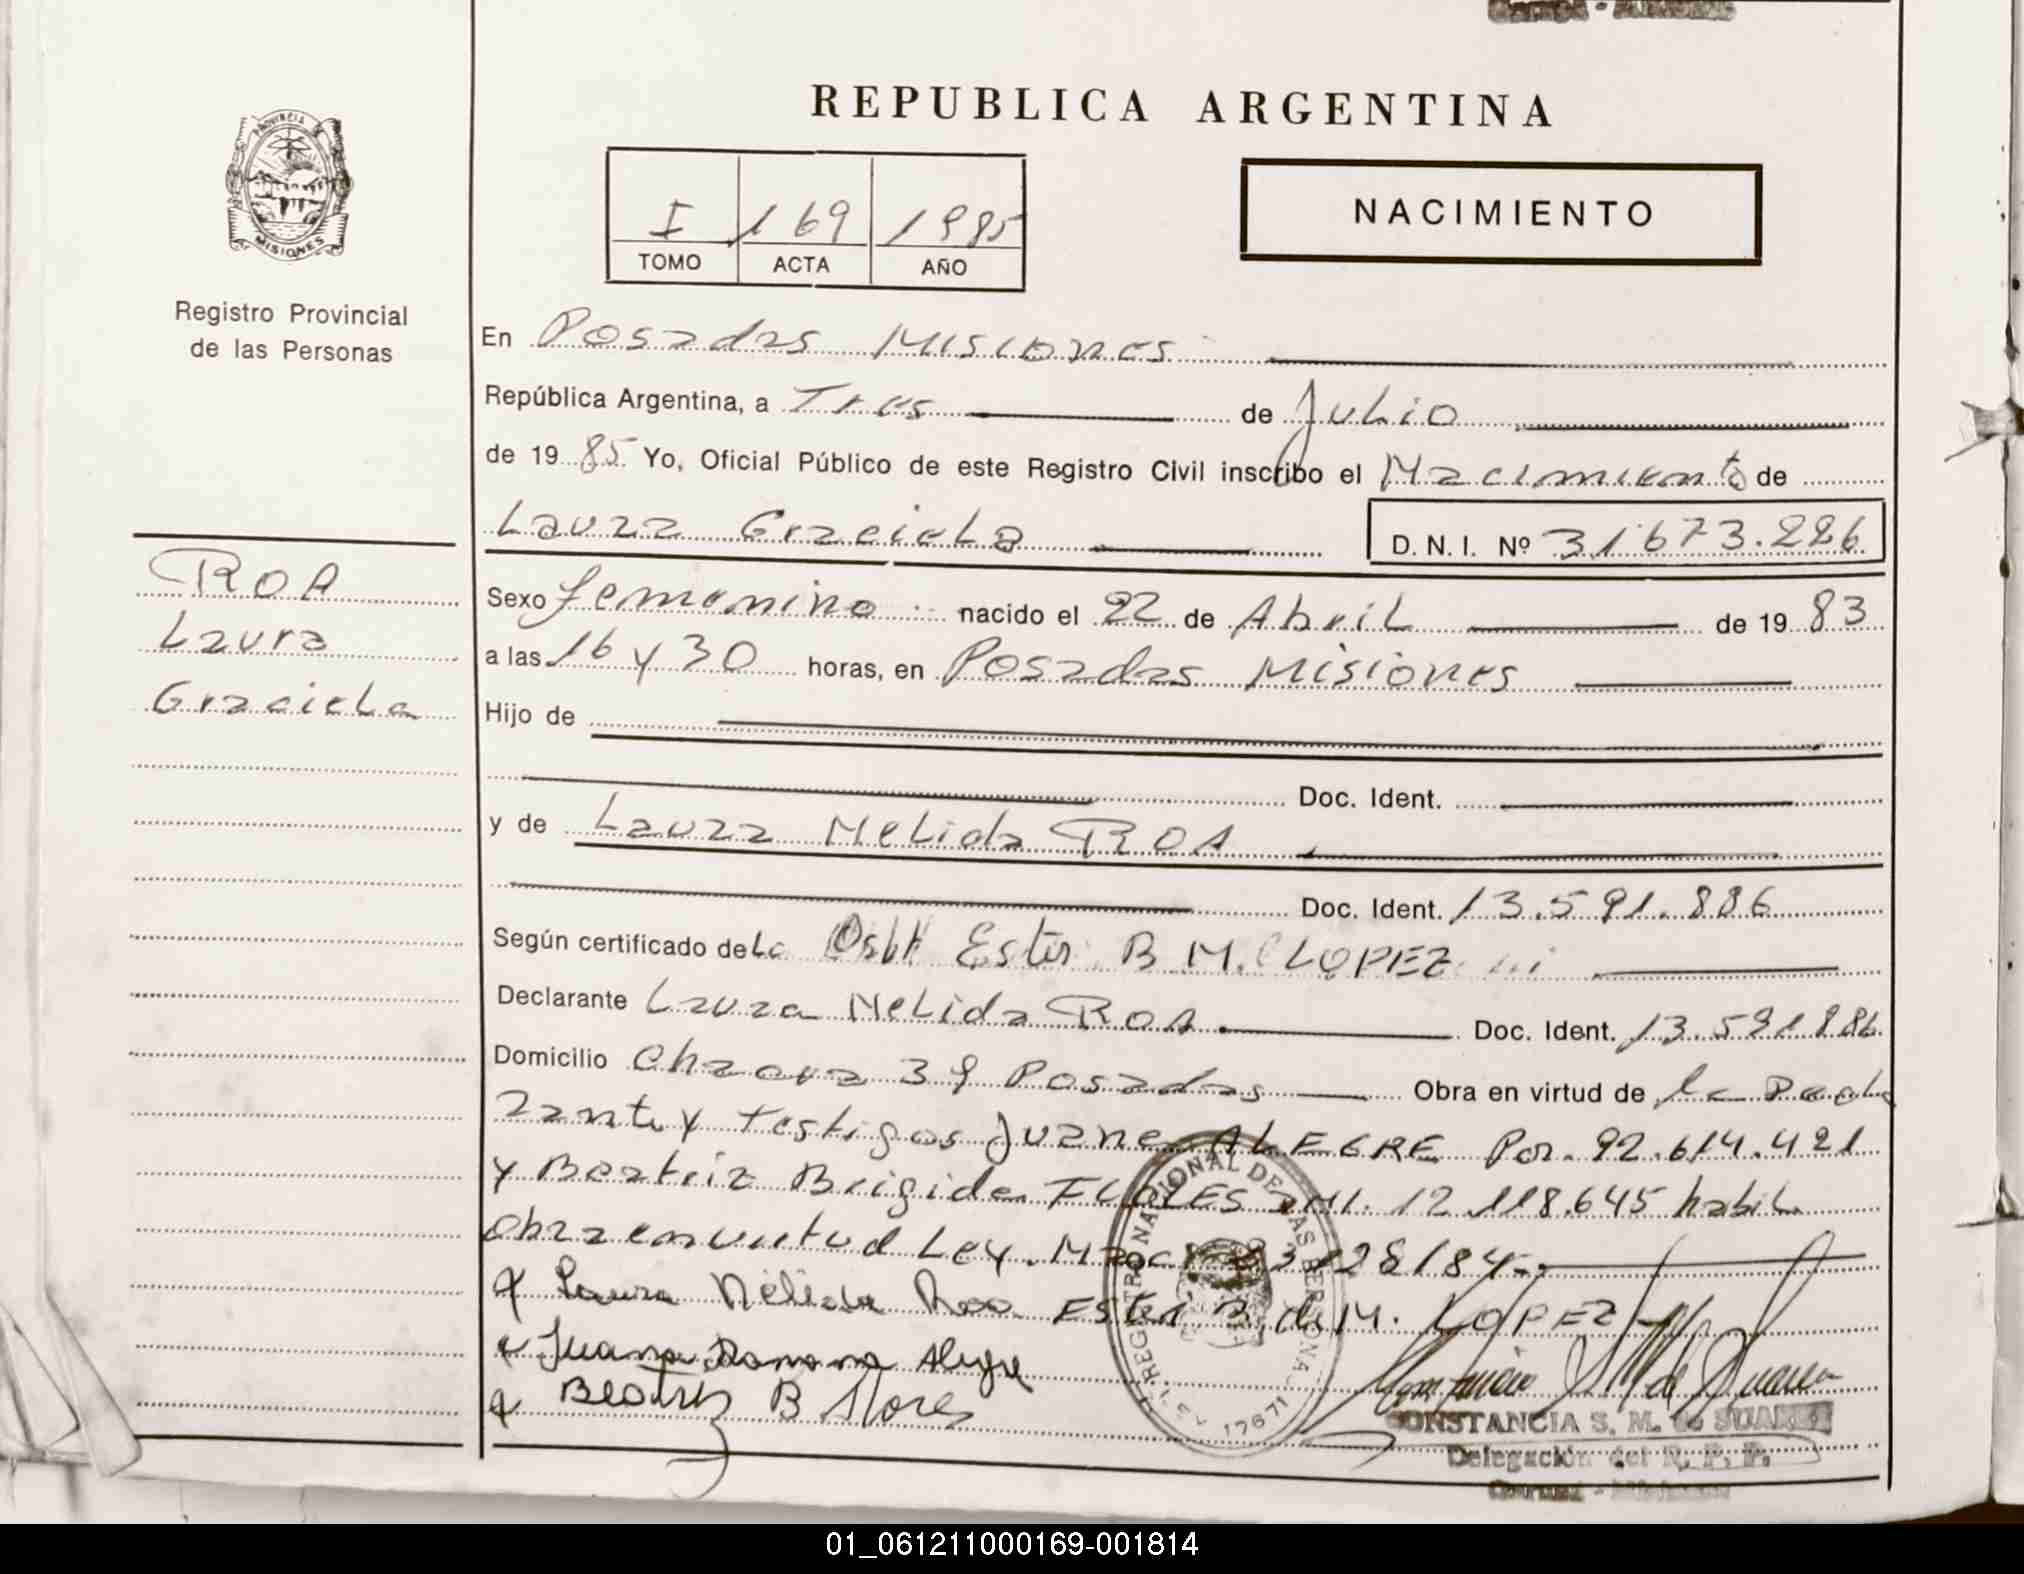 REPUBLICA ARGENTINA
PROVINCIA DE
MISIONES
Registro Provincial
de las Personas
I 169 1985
TOMO ACTA AÑO
NACIMIENTO
En Posadas Misiones
República Argentina, a Tres de Julio
de 19 85 Yo, Oficial Público de este Registro Civil inscribo el Nacimiento de
Laura Graciela D. N. I. Nº 31.673.226
ROA
Laura
Graciela
Sexo femenino nacido el 22 de Abril de 19 83
a las 16 y 30 horas, en Posadas Misiones
Hijo de
Doc. Ident.
y de Laura Nelida ROA
Doc. Ident. 13.591.886
Según certificado de La Obst Ester B M. LOPEZ
Declarante Laura Nelida ROA Doc. Ident. 13.591886
Domicilio Chacra 39 Posadas Obra en virtud de la Decla
rante y testigos Juana ALEGRE Por. 92.614.421
y Beatriz Brigida FLORES DNI. 12.118.645 habil
obra en virtud Ley. Nac 23128/84
x Laura Nélida Roa Ester B. d. M. LOPEZ
x Juana Ramona Alegre
x Beatriz B Flores
REGISTRO NACIONAL DE LAS PERSONAS
17671
CONSTANCIA S. M. de SUAREZ
Delegación del R. P. P.